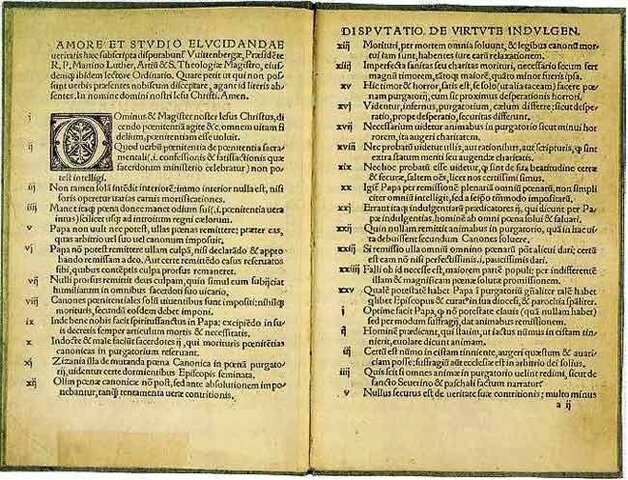 AMORE ET STVDIO ELVCIDANDAE
ueritatis hæc subscripta disputabunt Vuittenbergæ, Præsidēte
R. P. Martino Luther, Artiū & S. Theologiæ Magistro, eius-
demq; ibidem lectore Ordinario. Quare petit ut qui non pos-
sunt uerbis præsentes nobiscum disceptare, agant id literis ab-
sentes. In nomine domini nostri Iesu Christi. Amen.
i DOminus & Magister noster Iesus Christus, di-
cendo pœnitentiā agite &c. omnem uitam fi-
delium, pœnitentiam esse uoluit.
ij Quod uerbū pœnitentia de pœnitentia sacra-
mentali (.i. confessionis & satisfactionis quæ
sacerdotum ministerio celebratur) non po-
test intelligi.
iij Non tamen solā intēdit interiorē: immo interior nulla est, nisi
foris operetur uarias carnis mortificationes.
iiij Manet itaq; pœna donec manet odium sui (.i. pœnitentia uera
intus) scilicet usq; ad introitum regni cælorum.
v Papa non uult nec potest, ullas pœnas remittere: præter eas,
quas arbitrio uel suo uel canonum imposuit.
vj Papa nō potest remittere ullam culpā, nisi declarādo & appro-
bando remissam a deo, Aut certe remittēdo casus reseruatos
sibi, quibus contēptis culpa prorsus remaneret.
vij Nulli prorsus remittit deus culpam, quin simul eum subijciat
humiliatum in omnibus sacerdoti suo uicario.
viij Canones pœnitentiales solū uiuentibus sunt impositi: nihilq;
morituris, secundū eosdem debet imponi.
ix Inde bene nobis facit spiritussanctus in Papa: excipiēdo in su-
is decretis semper articulum mortis & necessitatis.
x Indocte & male faciūt sacerdotes ij, qui morituris pœnitētias
canonicas in purgatorium reseruant.
xj Zizania illa de mutanda pœna Canonica in pœnā purgato-
rij, uidentur certe dormientibus Episcopis seminata.
xij Olim pœnæ canonicæ nō post, sed ante absolutionem impo-
nebantur, tanq̄ tentamenta ueræ contritionis.
DISPVTATIO DE VIRTVTE INDVLGEN.
xiij Morituri, per mortem omnia soluunt, & legibus canonū mor-
tui iam sunt, habentes iure earū relaxationem.
xiiij Imperfecta sanitas seu charitas morituri, necessario secum fert
magnū timorem, tātoq; maiorē, quāto minor fuerit ipsa.
xv Hic timor & horror, satis est, se solo (ut alia taceam) facere pœ-
nam purgatorij, cum sit proximus desperationis horrori.
xvj Videntur, infernus, purgatorium, cælum differre: sicut despe-
ratio, prope desperatio, securitas differunt.
xvij Necessarium uidetur animabus in purgatorio sicut minui hor-
rorem, ita augeri charitatem.
xviij Nec probatū uidetur ullis, aut rationibus, aut scripturis, q̄ sint
extra statum meriti seu augendæ charitatis.
xix Nec hoc probatū esse uidetur, q̄ sint de sua beatitudine certæ
& securæ, saltem oēs, licet nos certissimi simus.
xx Igit̄ Papa per remissionē plenariā omniū pœnarū, non simpli
citer omniū intelligit, sed a seipso tmmodo impositarū.
xxj Errant itaq; indulgentiarū prædicatores ij, qui dicunt per Pa-
pæ indulgentias, hominē ab omni pœna solui & saluari.
xxij Quin nullam remittit animabus in purgatorio, quā in hac ui-
ta debuissent secundum Canones soluere.
xxiij Si remissio ulla omniū omnino pœnarū pōt alicui dari; certū
est eam nō nisi perfectissimis, .i. paucissimis dari.
xxiiij Falli ob id necesse est, maiorem partē populi: per indifferentē
illam & magnificam pœnæ solutæ promissionem.
xxv Qualē potestatē habet Papa ī purgatoriū gn̄aliter talē habet
q̄libet Episcopus & curat9 in sua diocesi, & parochia sp̄āliter.
j Optime facit Papa, q̄ nō potestate clauis (quā nullam habet)
sed per modum suffragij, dat animabus remissionem.
ij Hominē prædicant, qui statim, ut iactus nūmus in cistam tin-
nierit, euolare dicunt animam.
iij Certū est nūmo in cistam tinniente, augeri quæstum & auari-
ciam posse; suffragiū aūt ecclesiæ est in arbitrio dei solius.
iiij Quis scit si omnes animæ in purgatorio uelint redimi, sicut de
sancto Seuerino & paschali factum narratur
v Nullus securus est de ueritate suæ contritionis; multo minus
a ij